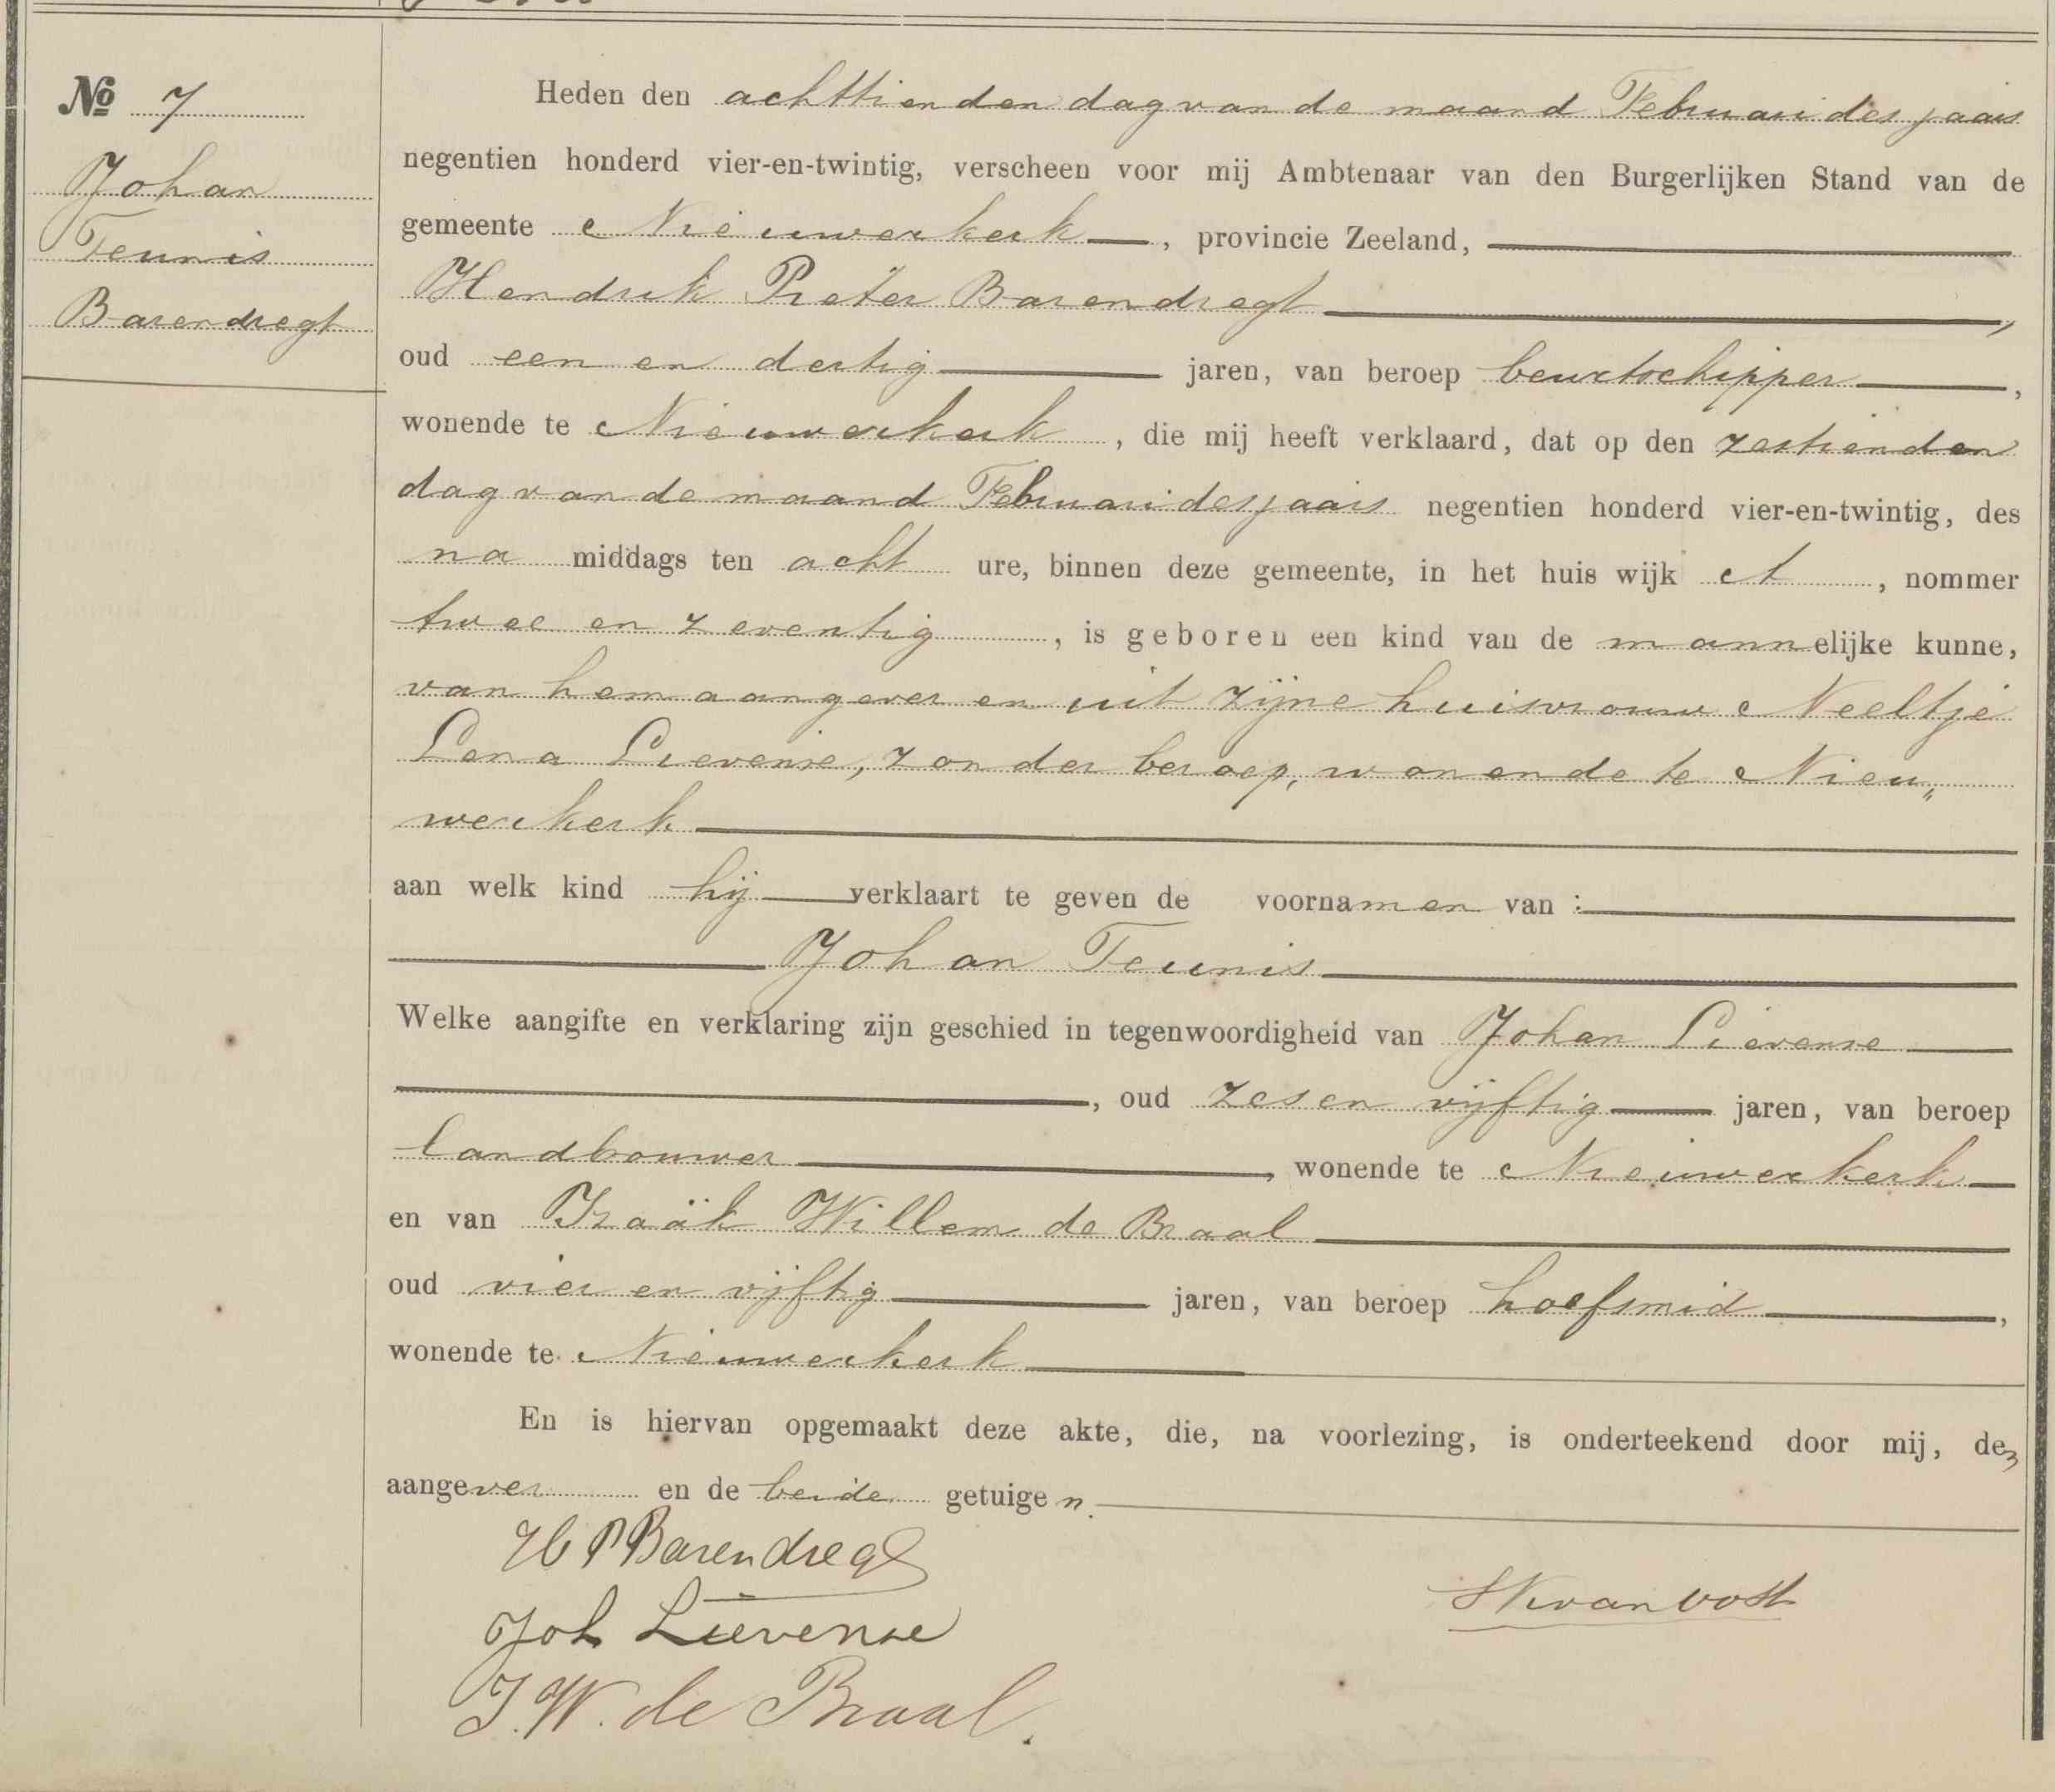 № 7
Johan
Teunis
Barendregt
Heden den achttienden dag van de maand Februari des jaars
negentien honderd vier-en-twintig, verscheen voor mij Ambtenaar van den Burgerlijken Stand van de
gemeente Nieuwerkerk, provincie Zeeland,
Hendrik Pieter Barendregt,
oud een en dertig jaren, van beroep beurtschipper,
wonende te Nieuwerkerk, die mij heeft verklaard, dat op den zestienden
dag van de maand Februari des jaars negentien honderd vier-en-twintig, des
na middags ten acht ure, binnen deze gemeente, in het huis wijk A, nommer
twee en zeventig, is geboren een kind van de mannelijke kunne,
van hem aangever en uit zijne huisvrouw Neeltje
Lena Lievense, zonder beroep, wonende te Nieu„
werkerk
aan welk kind hij verklaart te geven de voornamen van :
Johan Teunis
Welke aangifte en verklaring zijn geschied in tegenwoordigheid van Johan Lievense
, oud zes en vijftig jaren, van beroep
landbouwer, wonende te Nieuwerkerk
en van Izaäk Willem de Braal
oud vier en vijftig jaren, van beroep hoefsmid,
wonende te Nieuwerkerk
En is hiervan opgemaakt deze akte, die, na voorlezing, is onderteekend door mij, den
aangever en de beide getuigen.
H P Barendregt
Joh Lievense
J. W. de Braal.